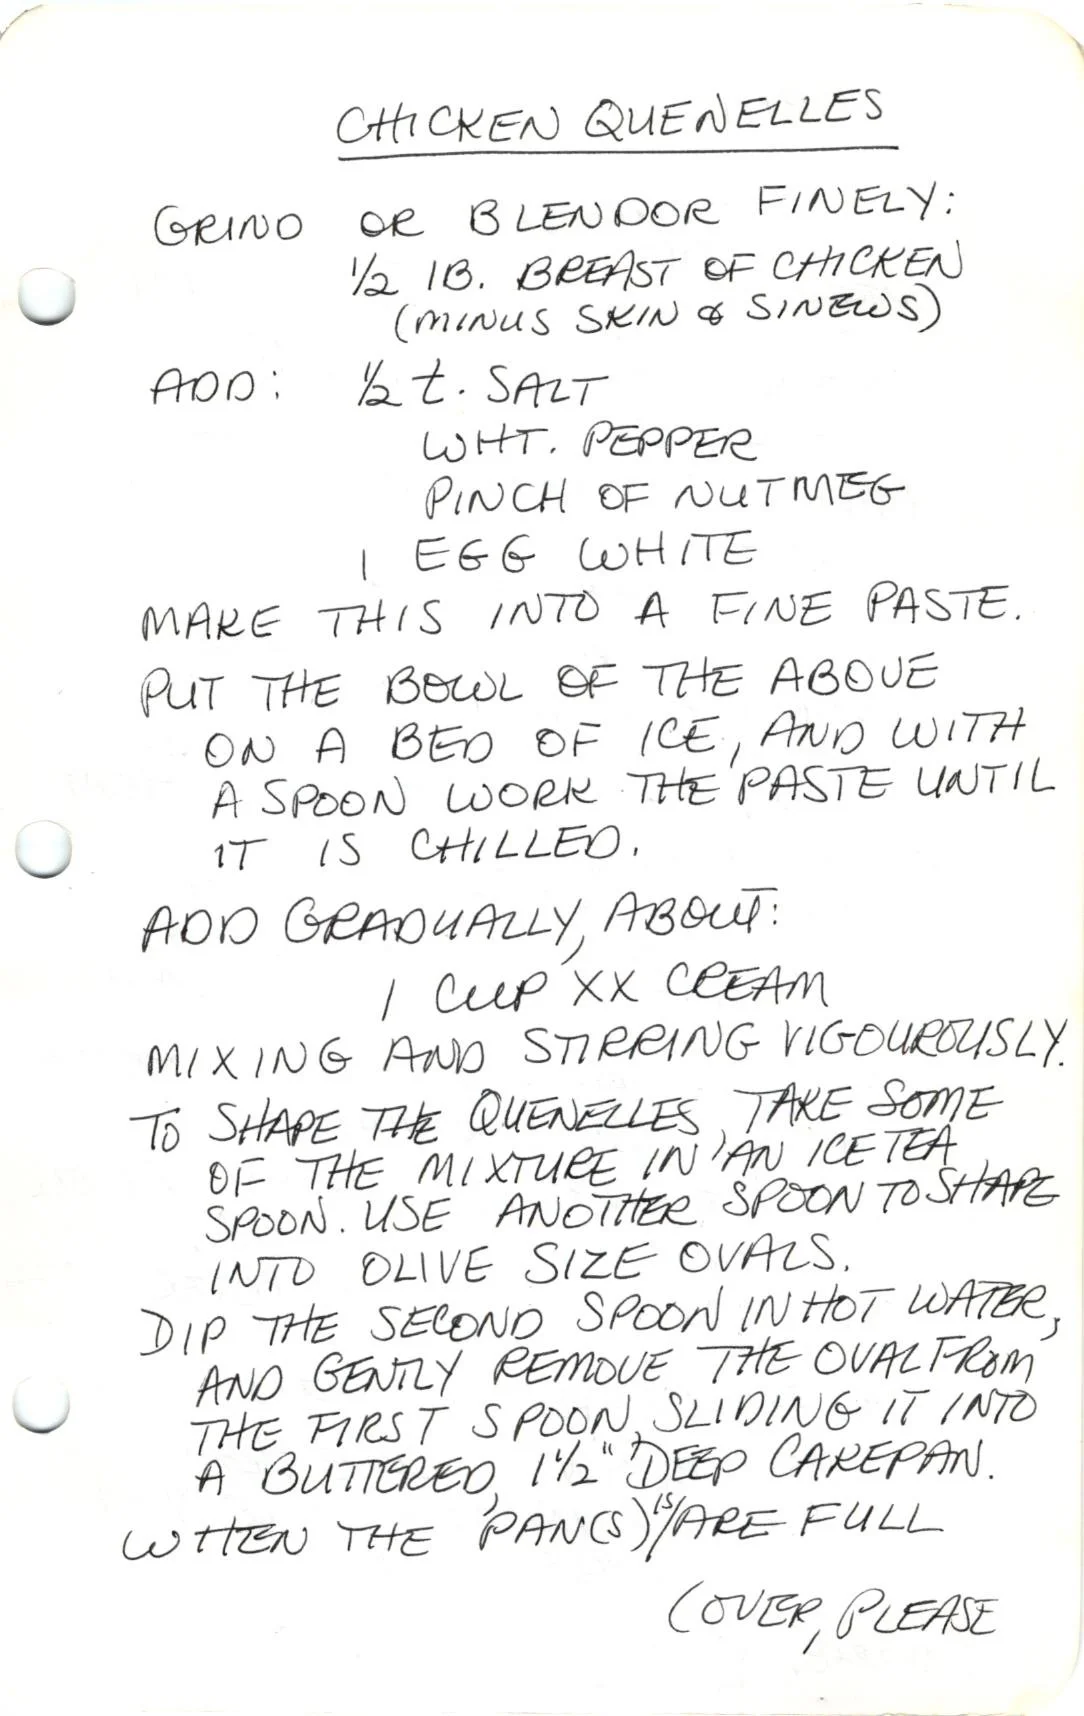 CHICKEN QUENELLES
GRIND OR BLENDOR FINELY:
1/2 lB. BREAST OF CHICKEN
(MINUS SKIN & SINEWS)
ADD: 1/2 t. SALT
WHT. PEPPER
PINCH OF NUTMEG
1 EGG WHITE
MAKE THIS INTO A FINE PASTE.
PUT THE BOWL OF THE ABOVE
ON A BED OF ICE, AND WITH
A SPOON WORK THE PASTE UNTIL
IT IS CHILLED.
ADD GRADUALLY, ABOUT:
1 CUP XX CREAM
MIXING AND STIRRING VIGOUROUSLY.
TO SHAPE THE QUENELLES, TAKE SOME
OF THE MIXTURE IN AN ICE TEA
SPOON. USE ANOTHER SPOON TO SHAPE
INTO OLIVE SIZE OVALS.
DIP THE SECOND SPOON IN HOT WATER,
AND GENTLY REMOVE THE OVAL FROM
THE FIRST SPOON, SLIDING IT INTO
A BUTTERED, 1 1/2" DEEP CAKEPAN.
WHEN THE PAN(S) IS/ARE FULL
(OVER, PLEASE